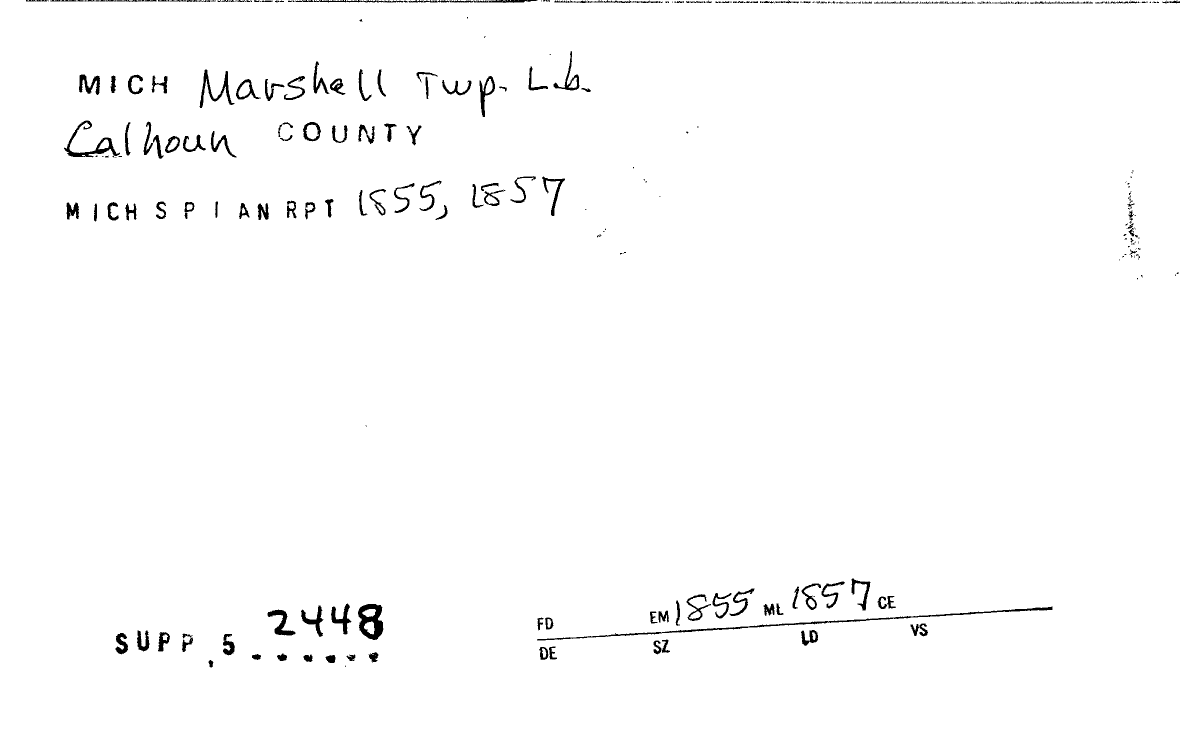 MICH Marshall Twp. Lib.
Calhoun COUNTY
MICH SPI AN RPT 1855, 1857
SUPP.5 2448
FD EM 1855 ML 1857 CE
DE SZ LD VS